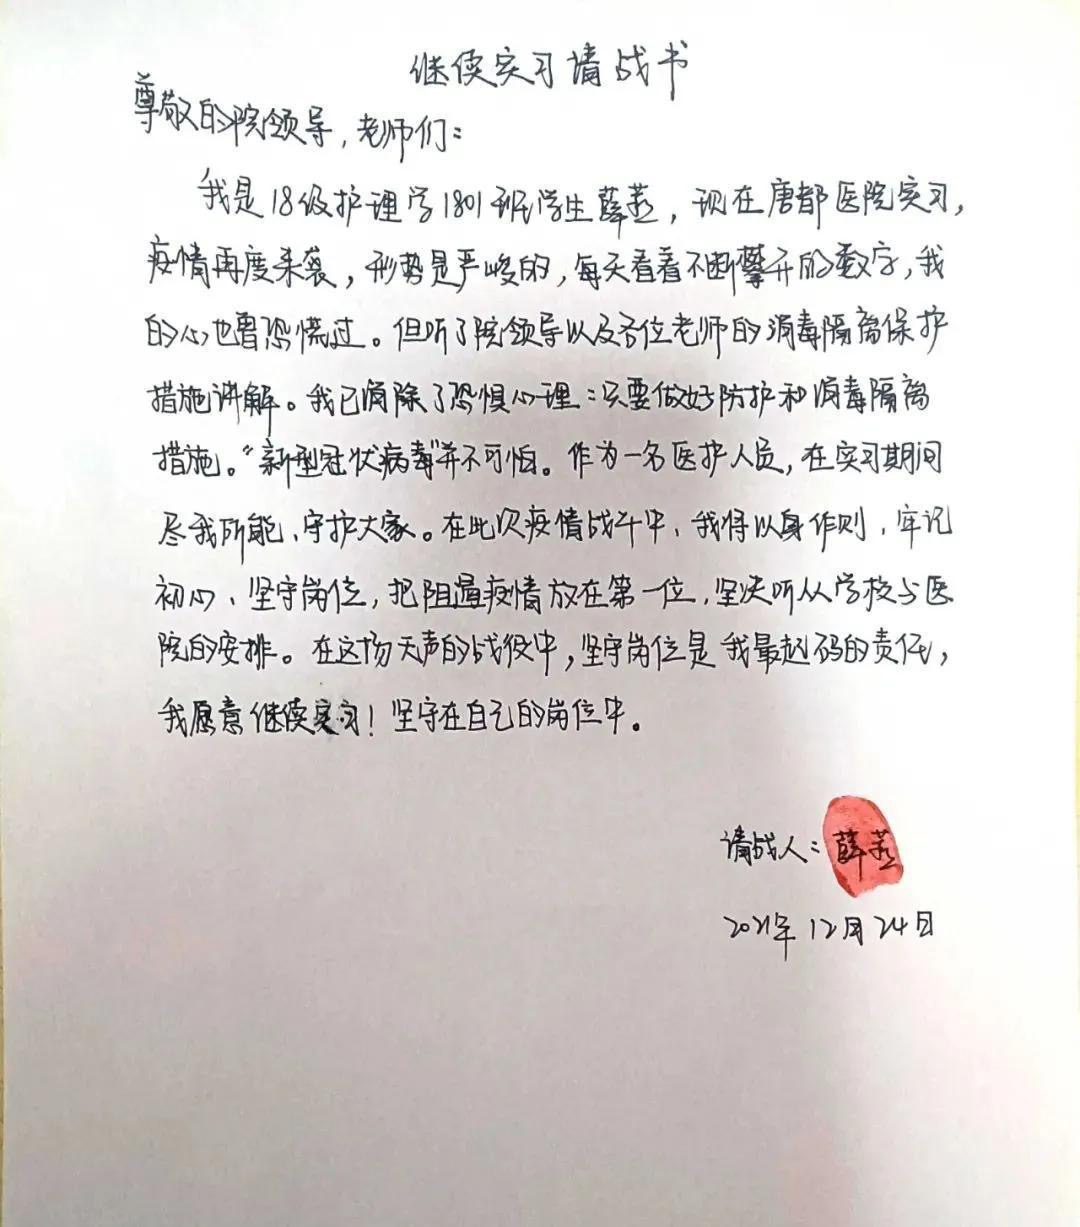 继续实习请战书
尊敬的院领导,老师们:
我是18级护理学1801班学生薛燕,现在唐都医院实习,
疫情再度来袭,形势是严峻的,每天看着不断攀升的数字,我
的心也曾恐慌过。但听了院领导以及各位老师的消毒隔离保护
措施讲解。我已消除了恐惧心理:只要做好防护和消毒隔离
措施。"新型冠状病毒"并不可怕。作为一名医护人员,在实习期间
尽我所能、守护大家。在此次疫情战斗中、我将以身作则,牢记
初心、坚守岗位,把阻遏疫情放在第一位,坚决听从学校与医
院的安排。在这场无声的战役中,坚守岗位是我最起码的责任,
我愿意继续实习!坚守在自己的岗位中。
请战人:薛燕
2021年12月24日